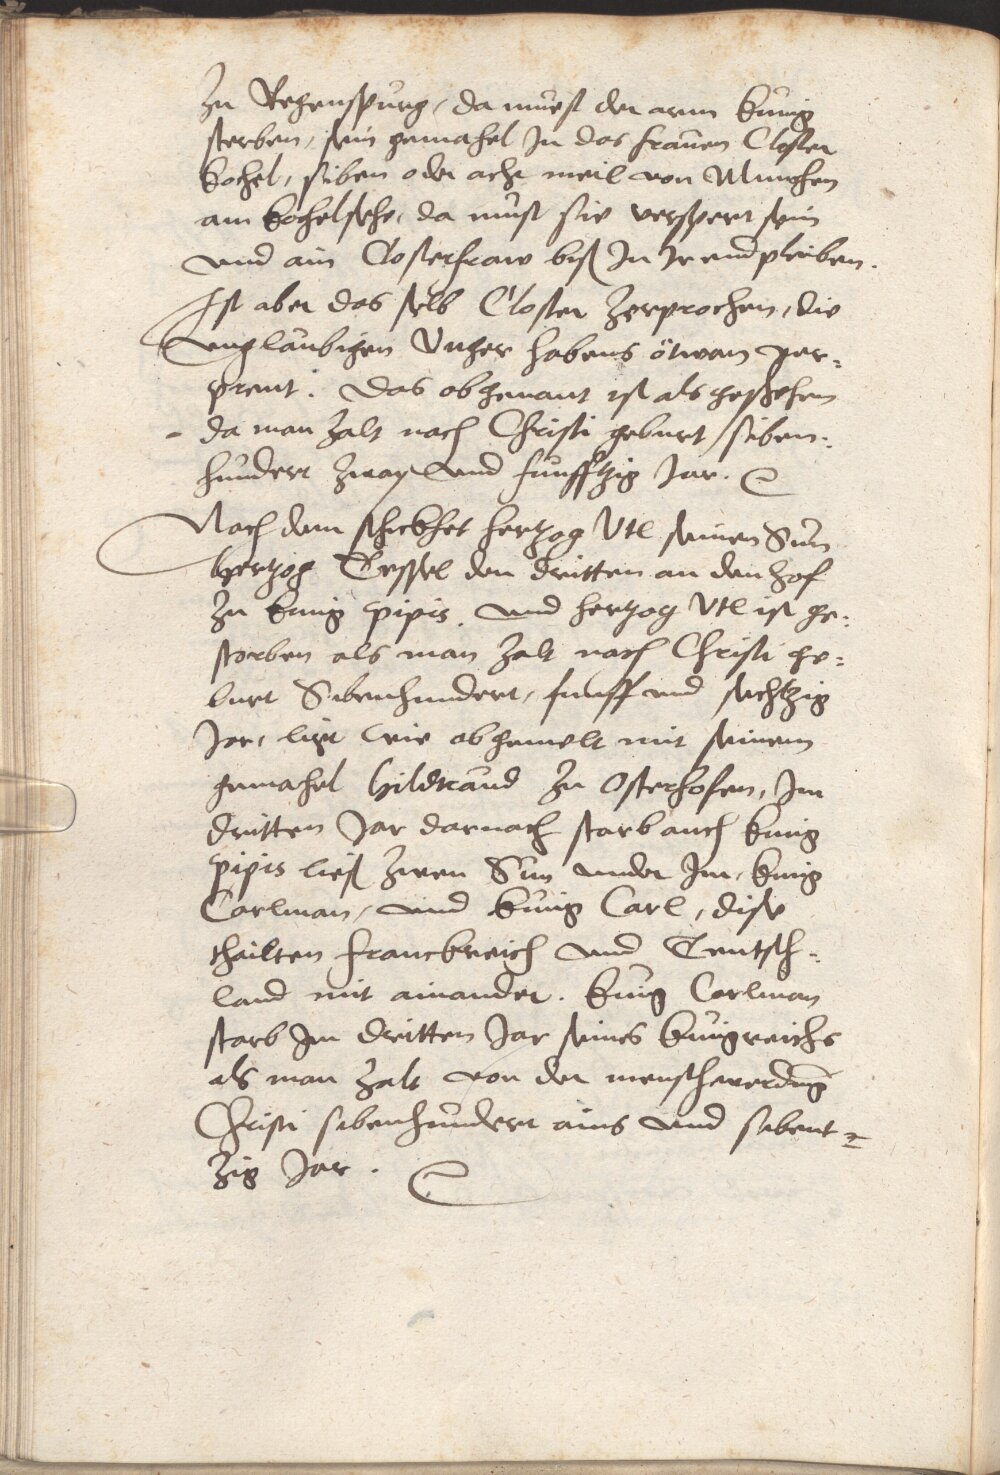 Zu Regenspurg, da muest der arm Künig
sterben, sein gemahel In das frauen Closter
Kochel, siben oder acht meil von Munchen
am Kochelsehe, da must sie verspert sein
und ain Closterfraw biß In Ir end pleiben.
Ist aber das selb Closter Zerprochen, die
unglaubigen Unger habens ötwan ver¬
prent. Das obgenant ist als geschehen
da man Zalt nach Christi geburt siben¬
hundert Zway und funfftzig Jar.
Nach dem schickhet hertzog Utl seinen Sun
Hertzog Tessel den dritten an den hof
Zu Künig Pipis. und hertzog Utl ist ge¬
storben als man Zalt nach Christi ge¬
burt Sibenhundert, funff und sechtzig
Jar, ligt wie obgemelt mit seinem
gemahel Hildtraud Zu Osterhofen, Im
dritten Jar darnach starb auch Künig
Pipis ließ Zwen Sün under Im, Künig
Carlman, und Künig Carl, dise
thailten Franckreich und Teutsch¬
land mit ainander. Künig Carlman
starb Im dritten Jar seines Künigreichs
als man Zalt von der menschwerdung
Christi sibenhundert ains und sibent¬
Zig Jar.